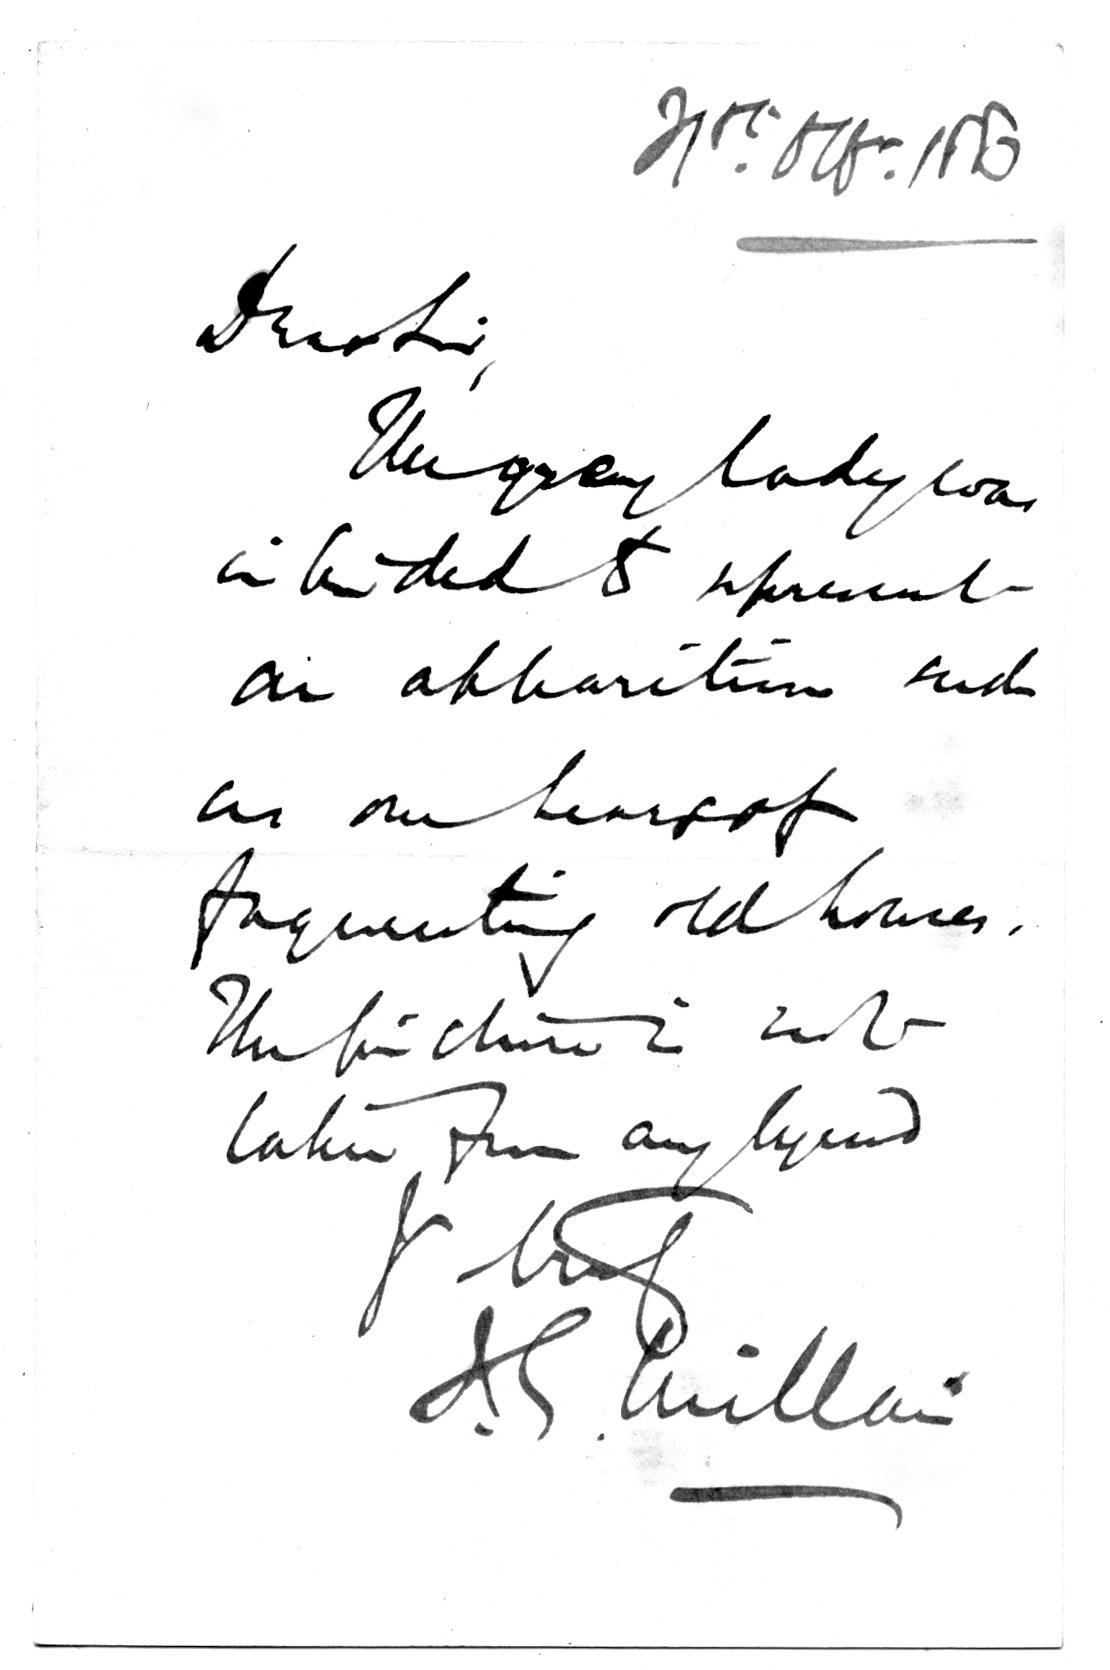 Dear Sir,
The grey lady was
intended to represent
an apparition such
as one hears of
frequenting old houses.
The picture is not
taken from any legend
Yr truly
J. E. Millais